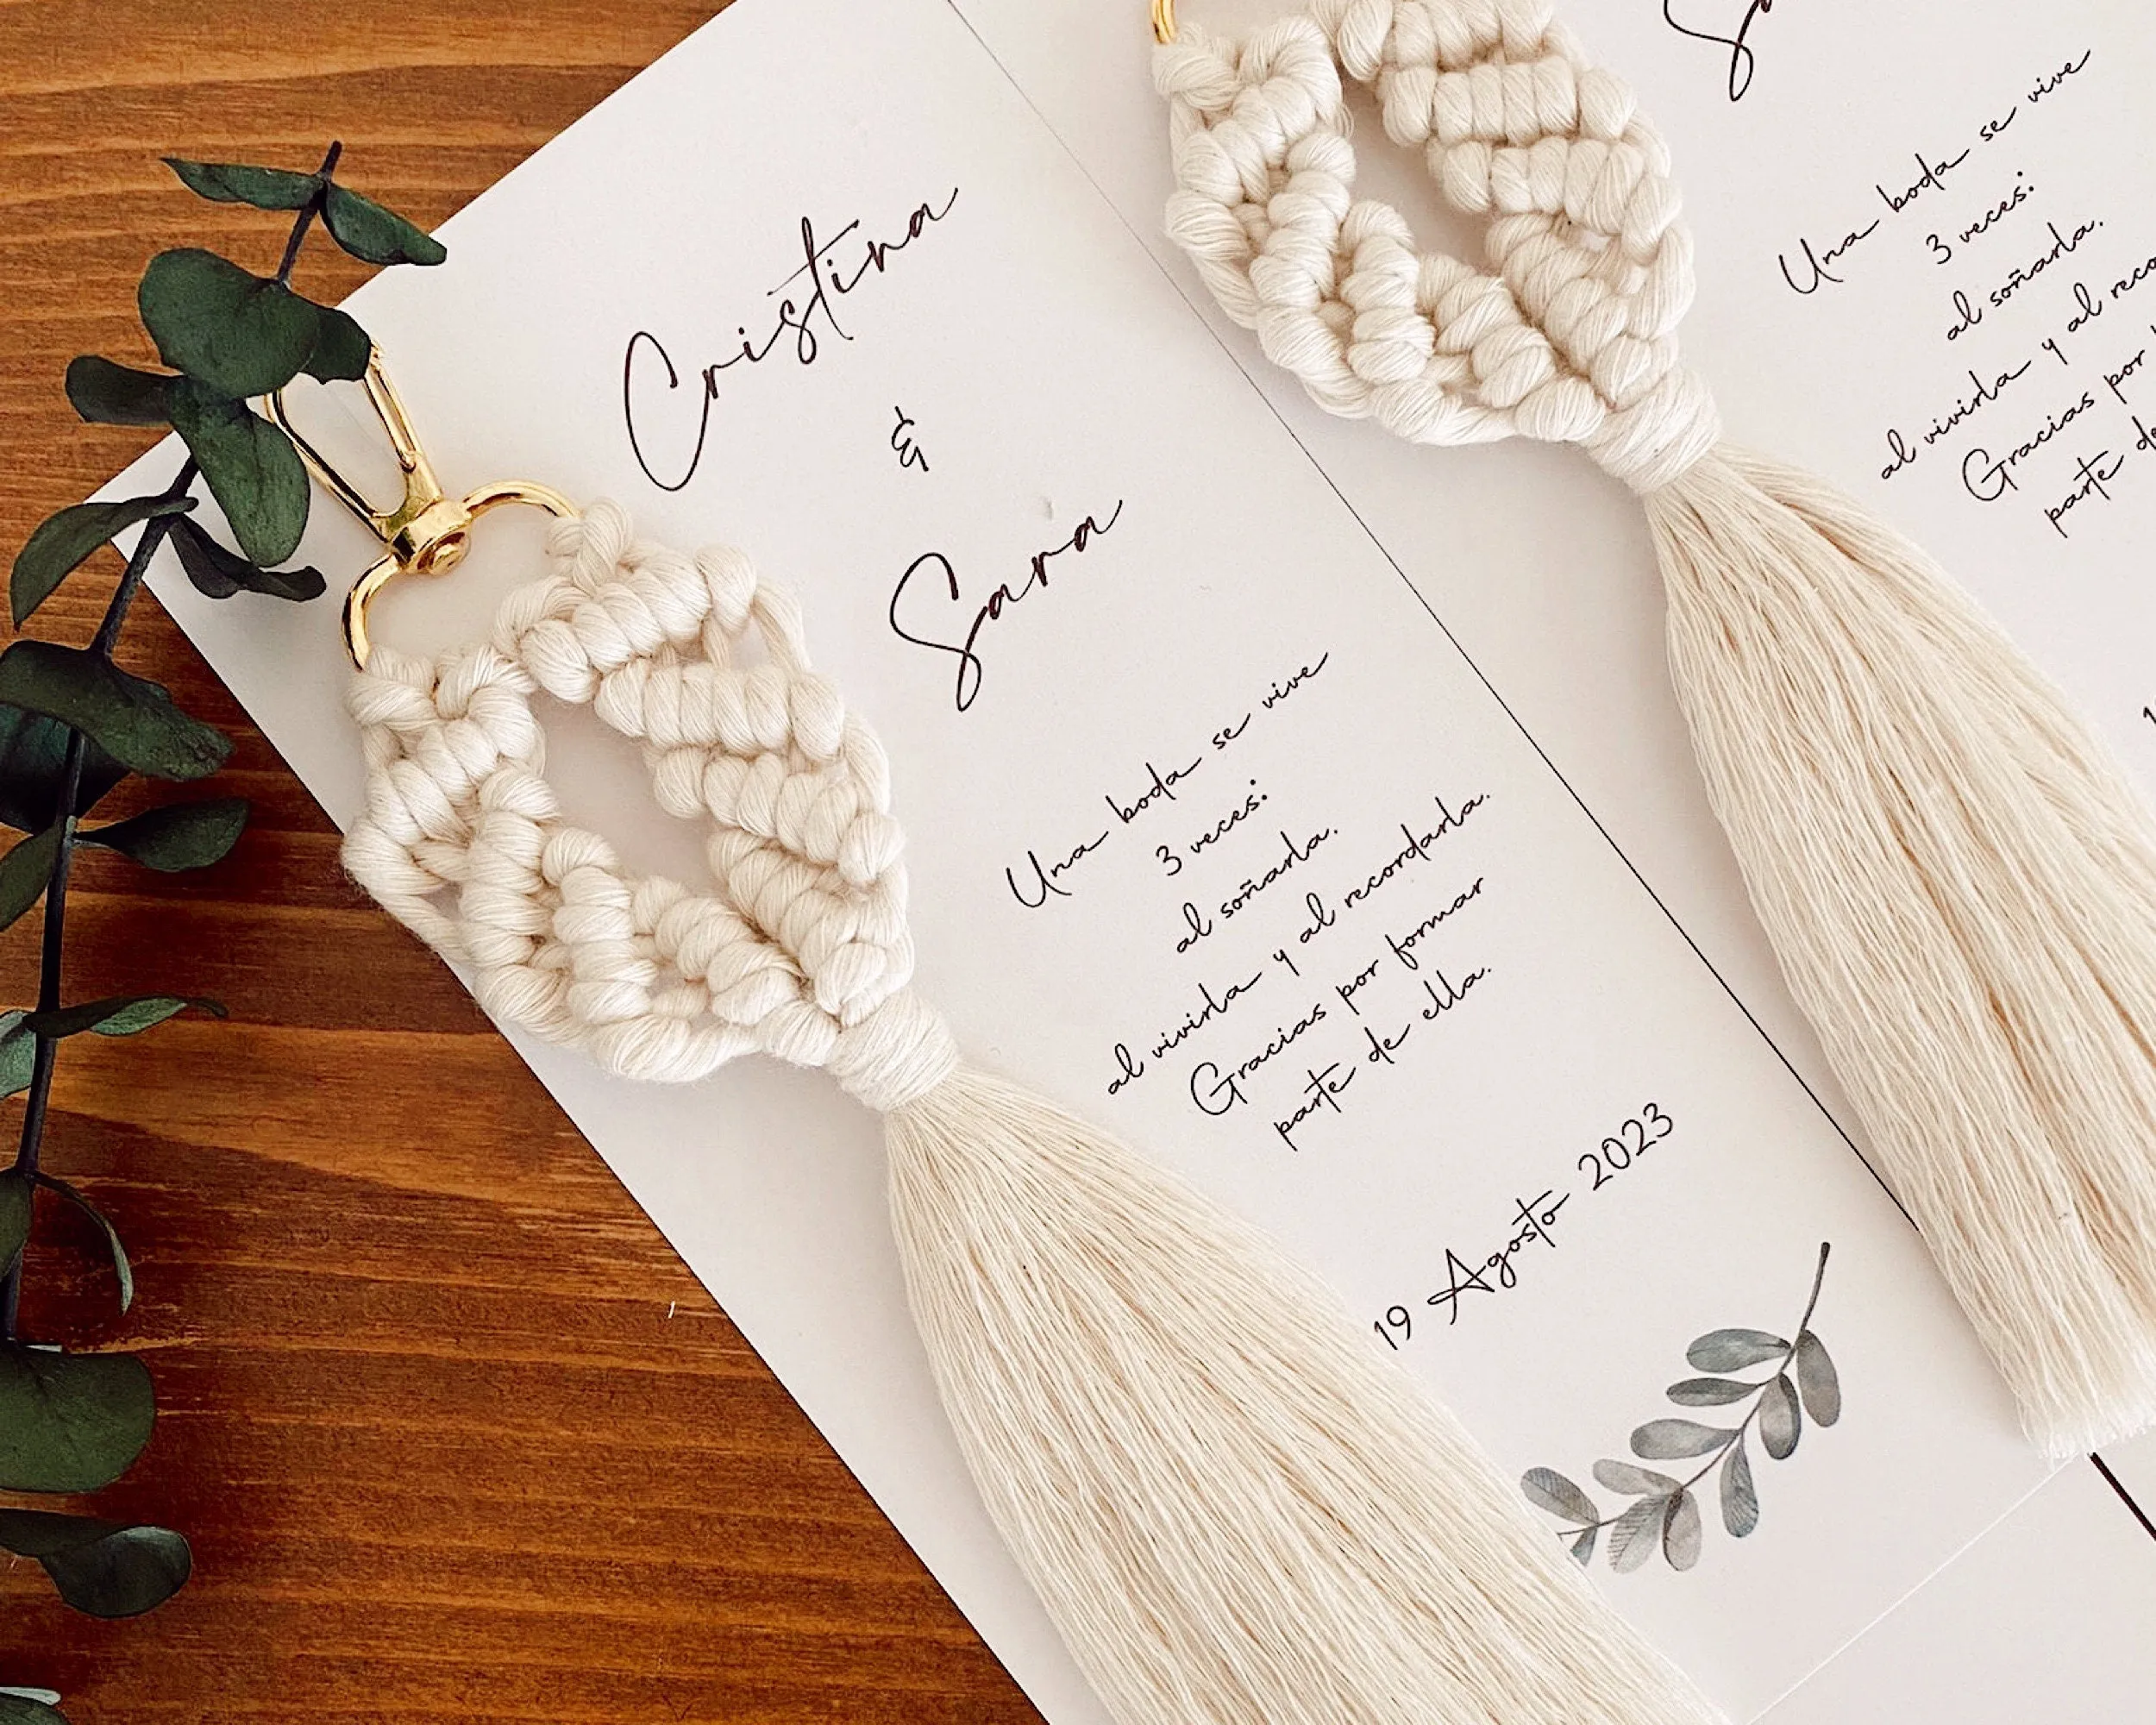 Cristina
&
Sara
Una boda se vive
3 veces:
al soñarla.
al vivirla y al recordarla.
Gracias por formar
parte de ella.
19 Agosto 2023
Una boda se vive
3 veces:
al soñarla.
al vivirla y al
Gracias por
parte